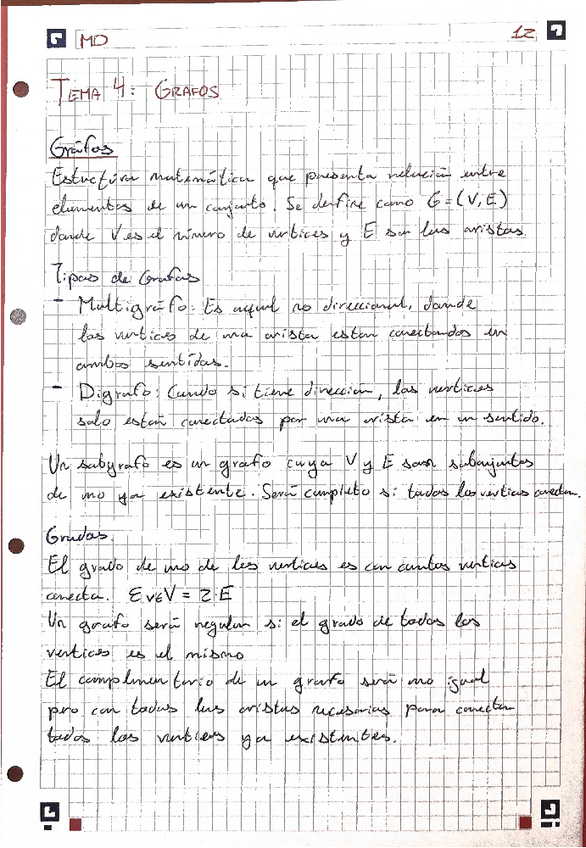 MD
12
TEMA 4: GRAFOS
Grafos
Estructura matemática que presenta relación entre
elementos de un conjunto. Se define como G=(V,E)
donde V es el número de vertices y E son las aristas.
Tipos de Grafos
- Multigrafo: Es aquel no direccional, donde
los vertices de una arista estan conectandos en
ambos sentidos.
- Digrafo: Cuando si tiene direccion, los vertices
solo están conectados por una arista en un sentido.
Un subgrafo es un grafo cuya V y E son subconjuntos
de uno ya existente. Será completo si todos los vertices conectan.
Grados.
El grado de uno de los vertices es con cuantos vertices
conecta. ΣV∈V = 2·E
Un grafo será regular si el grado de todos los
vertices es el mismo
El complimentario de un grafo será uno igual
pero con todas las aristas necesarias para conectar
todos los vertices ya existentes.